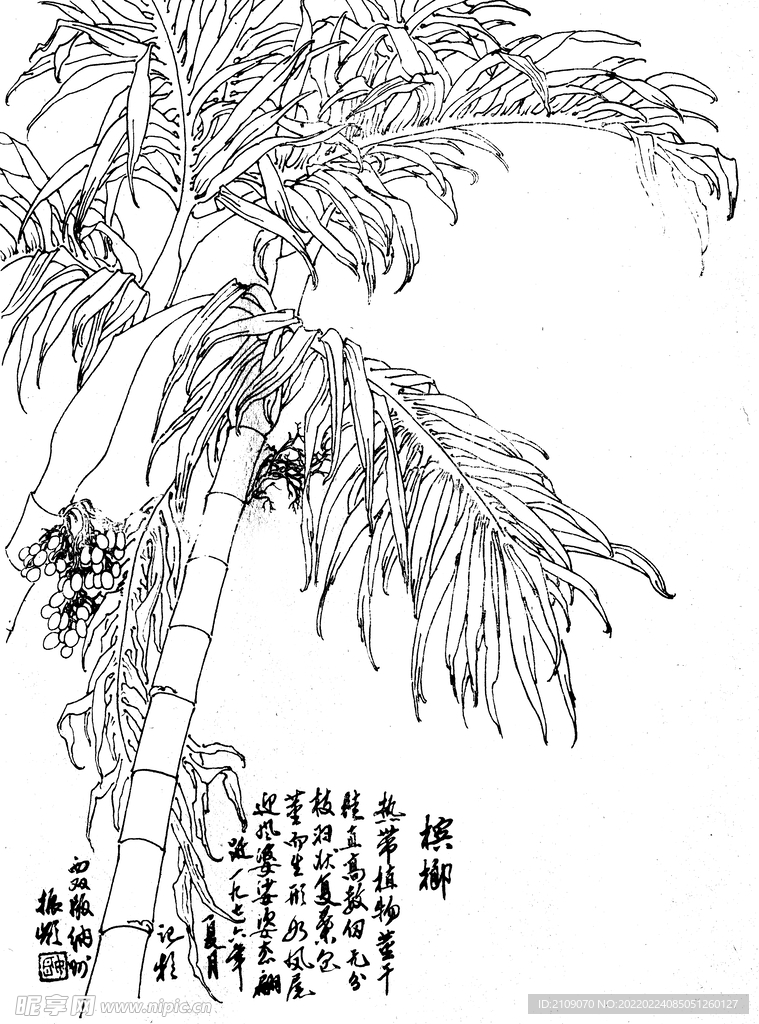 槟榔
热带植物茎干
陡直高数仞无分
枝羽状复叶包
茎而生形如凤尾
迎风婆娑姿态翩
跹一九七六年
夏月
记於
西双版纳州
振
昵享网 www.nipic.cn
ID:2109070 NO:20220224085051260127